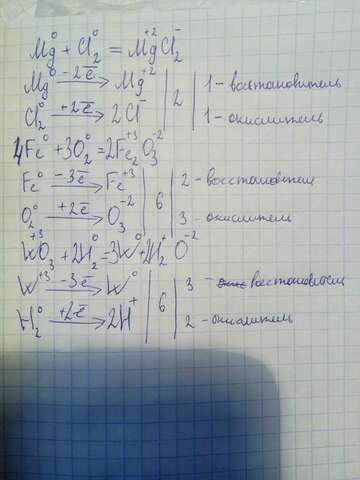 Mg⁰ + Cl₂⁰ = Mg⁺²Cl₂⁻
Mg⁰ −2ē → Mg⁺² | 2 | 1 - восстановитель
Cl₂⁰ +2ē → 2Cl⁻ | 1 - окислитель
4Fe⁰ + 3O₂⁰ = 2Fe₂⁺³O₃⁻²
Fe⁰ −3ē → Fe⁺³ | 6 | 2 - восстановител
O₂⁰ +2ē → O₃⁻² | 3 - окислител
W⁺³O₃ + 2H₂⁰ = 3W⁰ + 2H₂⁺O⁻²
W⁺³ −3ē → W⁰ | 6 | 3 - восстановител
H₂⁰ +2ē → 2H⁺ | 2 - окислител